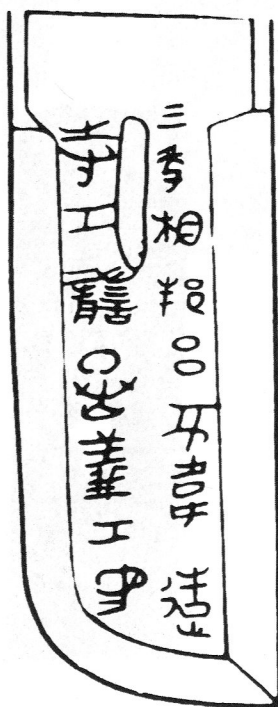 三年相邦呂不韋造
寺工讋丞義工窵